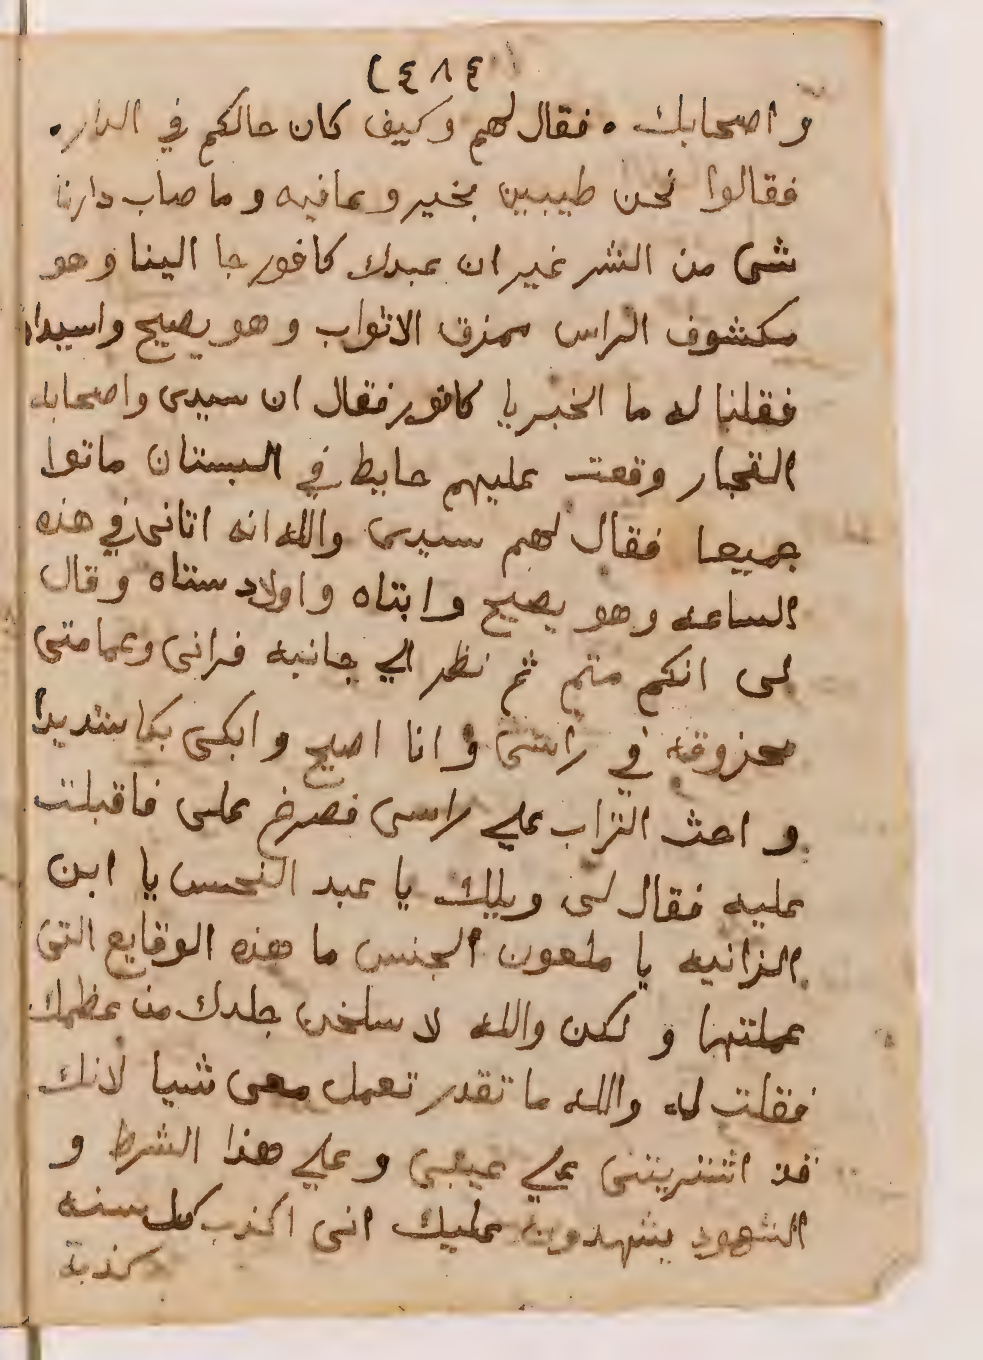 (٤٨٤)
و اصحابك . فقال لهم وكيف كان حالكم في الدار .
فقالوا نحن طيبين بخير و عافيه و ما صاب دارنا
شى من الشر غير ان عبدك كافور جا الينا و هو
مكشوف الراس ممزق الاثواب و هو يصيح واسيداه
فقلنا له ما الخبر يا كافور فقال ان سيدى واصحابه
التجار وقعت عليهم حايط في البستان ماتوا
جميعا فقال لهم سيدى والله انه اتانى في هذه
الساعه و هو يصيح وابتاه و اولاد ستاه و قال
لى انكم متم ثم نظر الي جانبه فرانى وعمامتى
محزوقه في راسى و انا اصيح و ابكى بكا شديدا
و احث التراب علي راسى فصرخ على فاقبلت
عليه فقال لى ويلك يا عبد النحس يا ابن
الزانيه يا ملعون الجنس ما هذه الوقايع التى
عملتها و لكن والله لا سلخن جلدك من عظمك
فقلت له والله ما تقدر تعمل معى شيا لانك
قد اشتريتنى علي عيبي و علي هذا الشرط و
الشهود يشهدون عليك انى اكذب كل سنه
كذبة